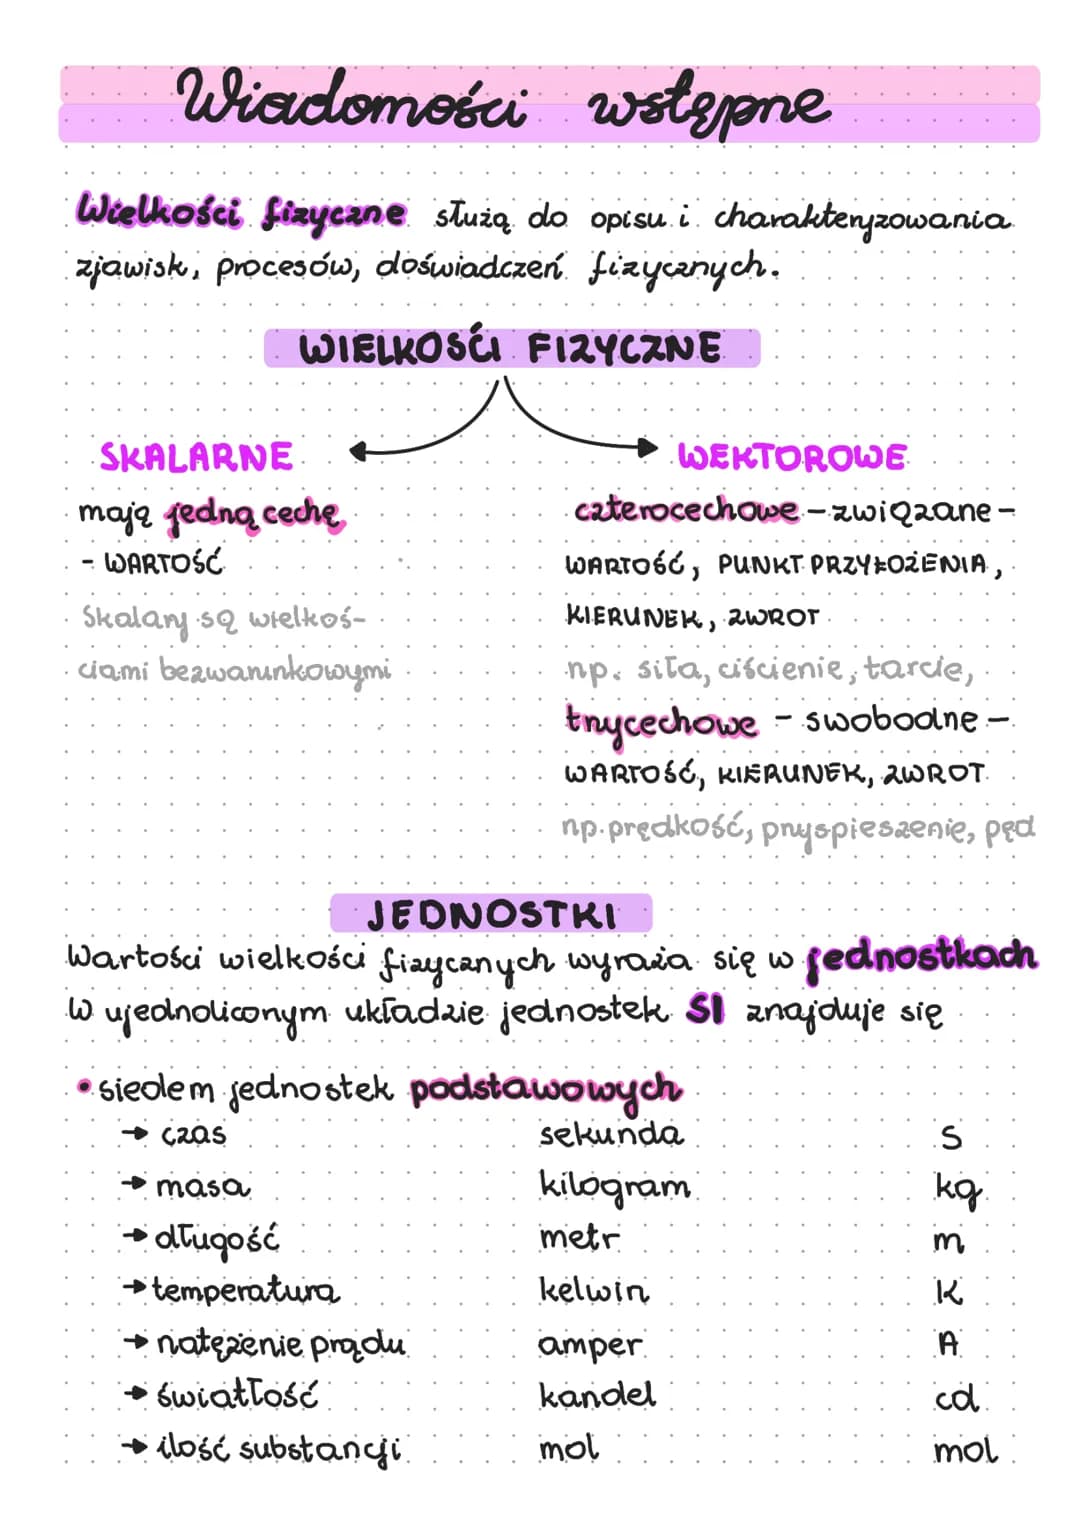 Wiadomości wstępne
Wielkości fizyczne służą do opisu i charakteryzowania
zjawisk, procesów, doświadczeń fizycznych.
WIELKOŚCI FIZYCZNE
SKALARNE
mają jedną cechę
- WARTOŚĆ
Skalary są wielkoś-
ciami bezwarunkowymi
WEKTOROWE
czterocechowe - związane -
WARTOŚĆ, PUNKT PRZYŁOŻENIA,
KIERUNEK, ZWROT
np. siła, ciścienie, tarcie,
trzycechowe - swobodne -
WARTOŚĆ, KIERUNEK, ZWROT
np. prędkość, przyspieszenie, pęd
JEDNOSTKI
Wartości wielkości fizycznych wyraża się w jednostkach
W ujednoliconym układzie jednostek SI znajduje się
• siedem jednostek podstawowych
→ czas sekunda s
→ masa kilogram kg
→ długość metr m
→ temperatura kelwin K
→ natężenie prądu amper A
→ światłość kandel cd
→ ilość substancji mol mol